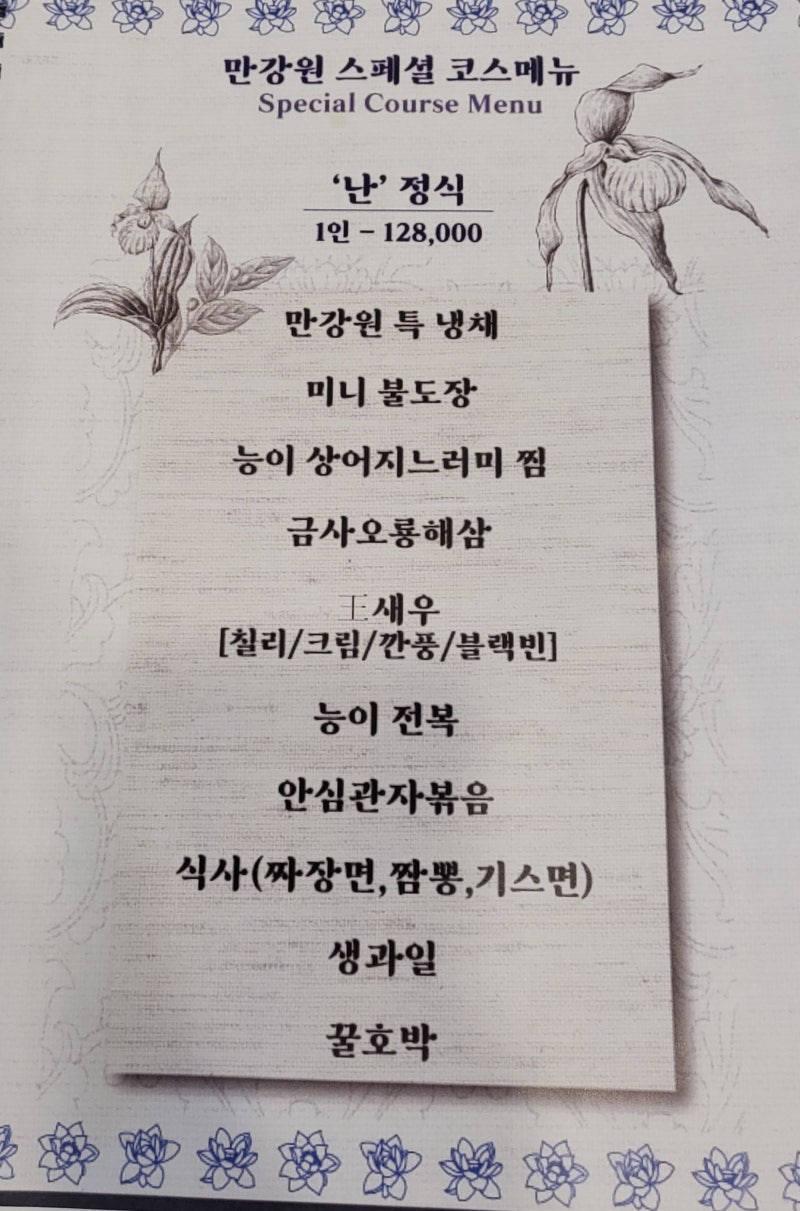 만강원 스페셜 코스메뉴
Special Course Menu
‘난’ 정식
1인 - 128,000
만강원 특 냉채
미니 불도장
능이 상어지느러미 찜
금사오룡해삼
王새우
[칠리/크림/깐풍/블랙빈]
능이 전복
안심관자볶음
식사(짜장면,짬뽕,기스면)
생과일
꿀호박